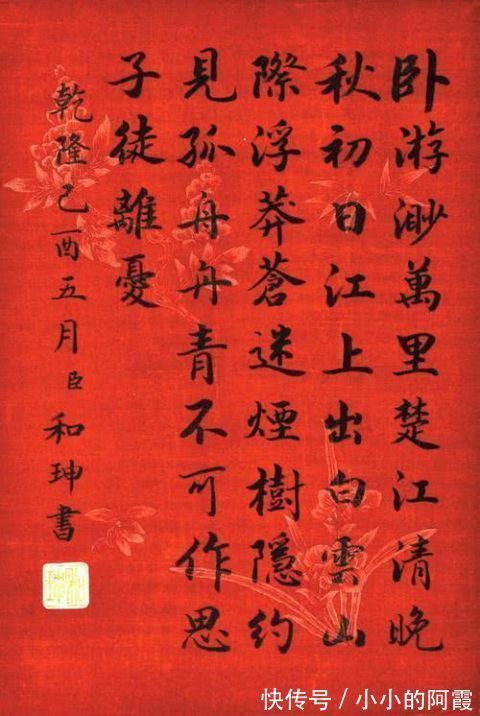 卧游渺萬里楚江清晚
秋初日江上出白雲山
際浮莽蒼迷煙樹隱約
見孤舟舟青不可作思
子徒離憂
乾隆己酉五月臣和珅書
快传号/小小的阿霞